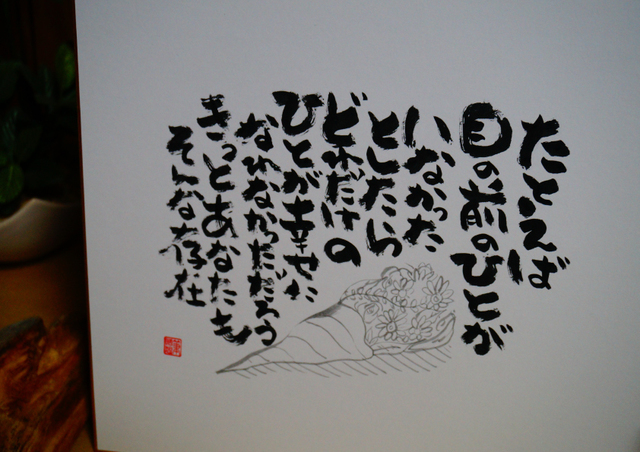 たとえば
目の前のひとが
いなかった
としたら
どれだけの
ひとが幸せに
なれなかっただろう
きっとあなたも
そんな存在